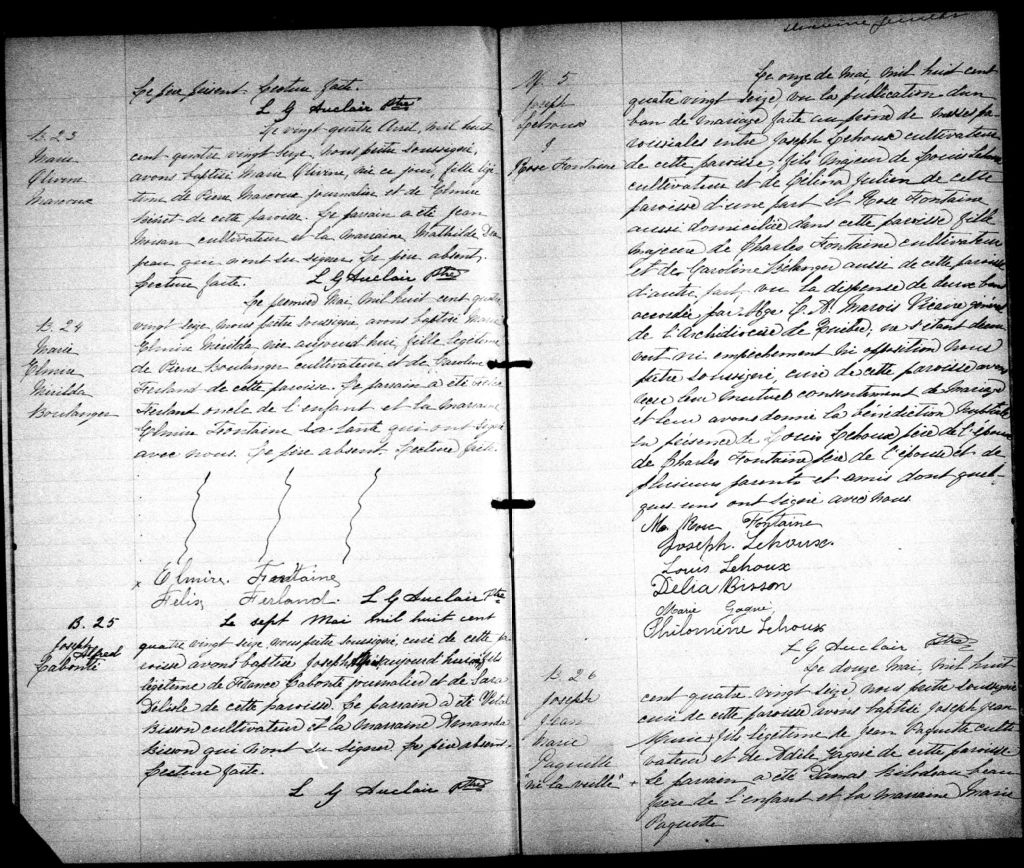 Le père présent. Lecture faite.
L G Auclair Ptre
B. 23
Marie
Olivine
Marcoux
Le vingt quatre Avril, mil huit
cent quatre vingt seize, nous prêtre soussigné,
avons baptisé Marie Olivine, née ce jour, fille légi
time de Pierre Marcoux journalier et de Elmire
de cette paroisse. Le parrain a été Jean
cultivateur et la marraine Mathilde Dra
peau qui n'ont su signer. Le père absent.
Lecture faite. L G Auclair Ptre
B. 24
Marie
Elmire
Mérilda
Boulanger
Le premier Mai, mil huit cent quatre
vingt seize, nous prêtre soussigné, avons baptisé Marie
Elmire Mérilda née aujourd'hui, fille légitime
de Pierre Boulanger cultivateur et de Caroline
Ferland de cette paroisse. Le parrain a été Félix
Ferland oncle de l'enfant et la marraine
Elmire Fontaine sa tante qui ont signé
avec nous. Le père absent. Lecture faite.
x Elmire Fontaine
Félix Ferland. L G Auclair Ptre
B. 25
Joseph
Alfred
Labonté
Le sept Mai mil huit cent
quatre vingt seize, nous prêtre soussigné, curé de cette pa
roisse avons baptisé Joseph aujourd'hui, fils
légitime de France Labonté journalier et de Sara
Delisle de cette paroisse. Le parrain a été
Bisson cultivateur et la marraine Amanda
Bisson qui n'ont su signer. Le père absent.
Lecture faite.
L G Auclair Ptre
M. 5
Joseph
Lehoux
&
Rose Fontaine
Le onze de Mai, mil huit cent
quatre vingt seize, vu la publication d'un
ban de mariage faite au prône de messes pa
roissiales entre Joseph Lehoux cultivateur
de cette paroisse, fils majeur de Louis Lehoux
cultivateur et de Célina Julien de cette
paroisse d'une part et Rose Fontaine
aussi domiciliée dans cette paroisse fille
majeure de Charles Fontaine cultivateur
et de Caroline Bélanger aussi de cette paroisse
d'autre part, vu la dispense de deux bans
accordée par Mgr C. A. Marois Vicaire général
de l'Archidiocèse de Québec, ne s'étant décou
vert ni empêchement ni opposition nous
prêtre soussigné, curé de cette paroisse avons
reçu leur mutuel consentement de mariage
et leur avons donné la bénédiction nuptiale
en présence de Louis Lehoux père de l'époux
de Charles Fontaine père de l'épouse et de
plusieurs parents et amis dont quel-
ques uns ont signé avec nous
M. Rose Fontaine
Joseph. Lehoux.
Louis Lehoux
Délia Bisson
Marie Gagné
Philomène Lehoux
L G Auclair Ptre
B. 26
Joseph
Jean
Marie
Paquette
"né la veille" +
Le douze Mai, mil huit
cent quatre vingt seize, nous prêtre soussigné
curé de cette paroisse avons baptisé Joseph Jean
Marie + fils légitime de Jean Paquette culti
vateur et de Adèle Gagné de cette paroisse
Le parrain a été Damas Bilodeau beau
frère de l'enfant et la marraine Marie
Paquette